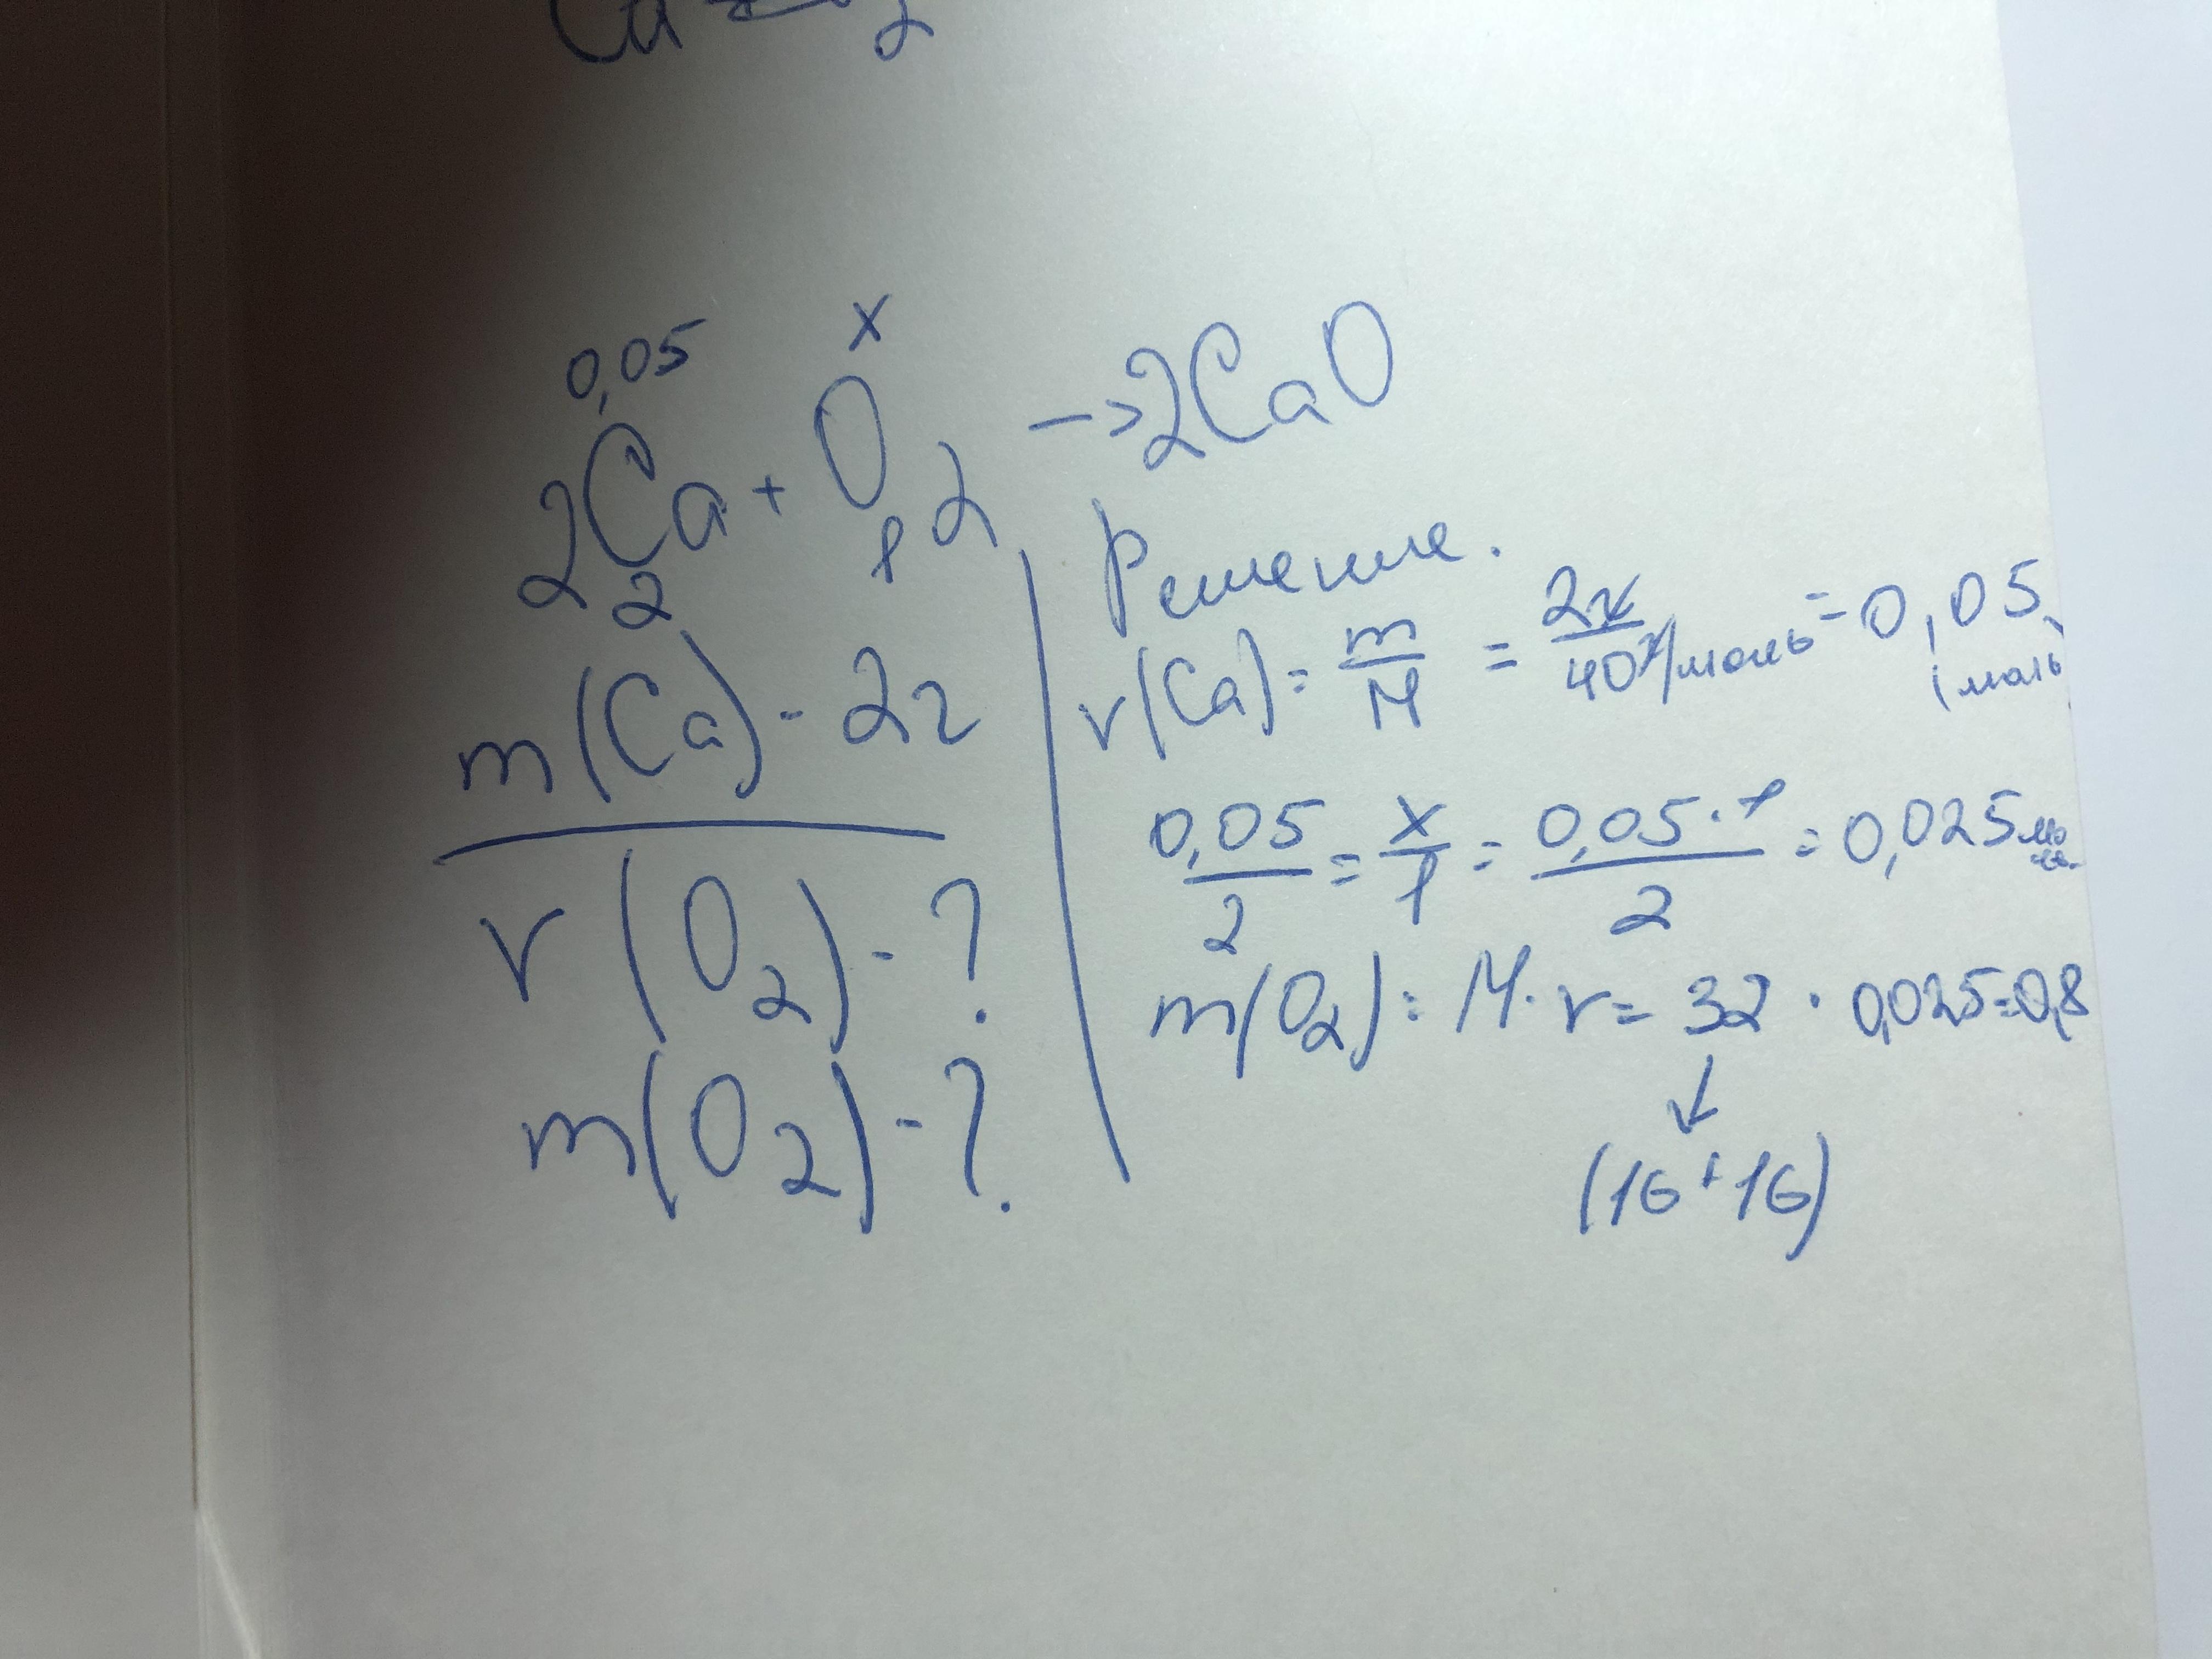 0,05 x
2Ca + O2 → 2CaO
2 1
m(Ca) - 2г
ν(O2) - ?
m(O2) - ?
Решение.
ν(Ca) = m/M = 2г/40г/моль = 0,05 моль
0,05/2 = x/1 = 0,05·1/2 = 0,025 моль
m(O2) = M·ν = 32 · 0,025 = 0,8
↓
(16+16)